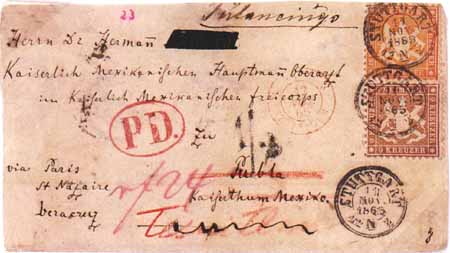 23
Tulancingo
Herrn Dr. Hermañ
Kaiserlich Mexikanischen Hauptmañ Oberarzt
im Kaiserlich Mexikanischen freicorps
P.D.
Zu
Puebla
Kaiserthum Mexiko.
via Paris
St Nazaire
Veracruz
STUTTGART
NOV.
1865
STUTTGART
KREUZER
STUTTGART
NOV.
1865
N